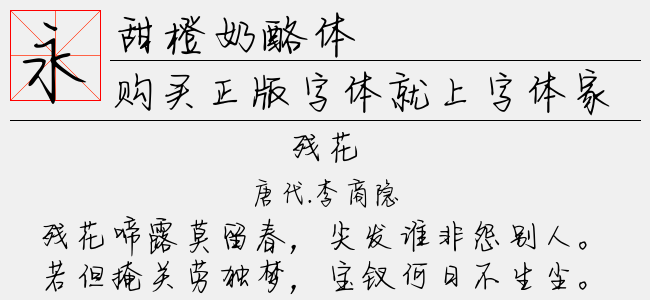 永
甜橙奶酪体
购买正版字体就上字体家
残花
唐代.李商隐
残花啼露莫留春，尖发谁非怨别人。
若但掩关劳独梦，宝钗何日不生尘。